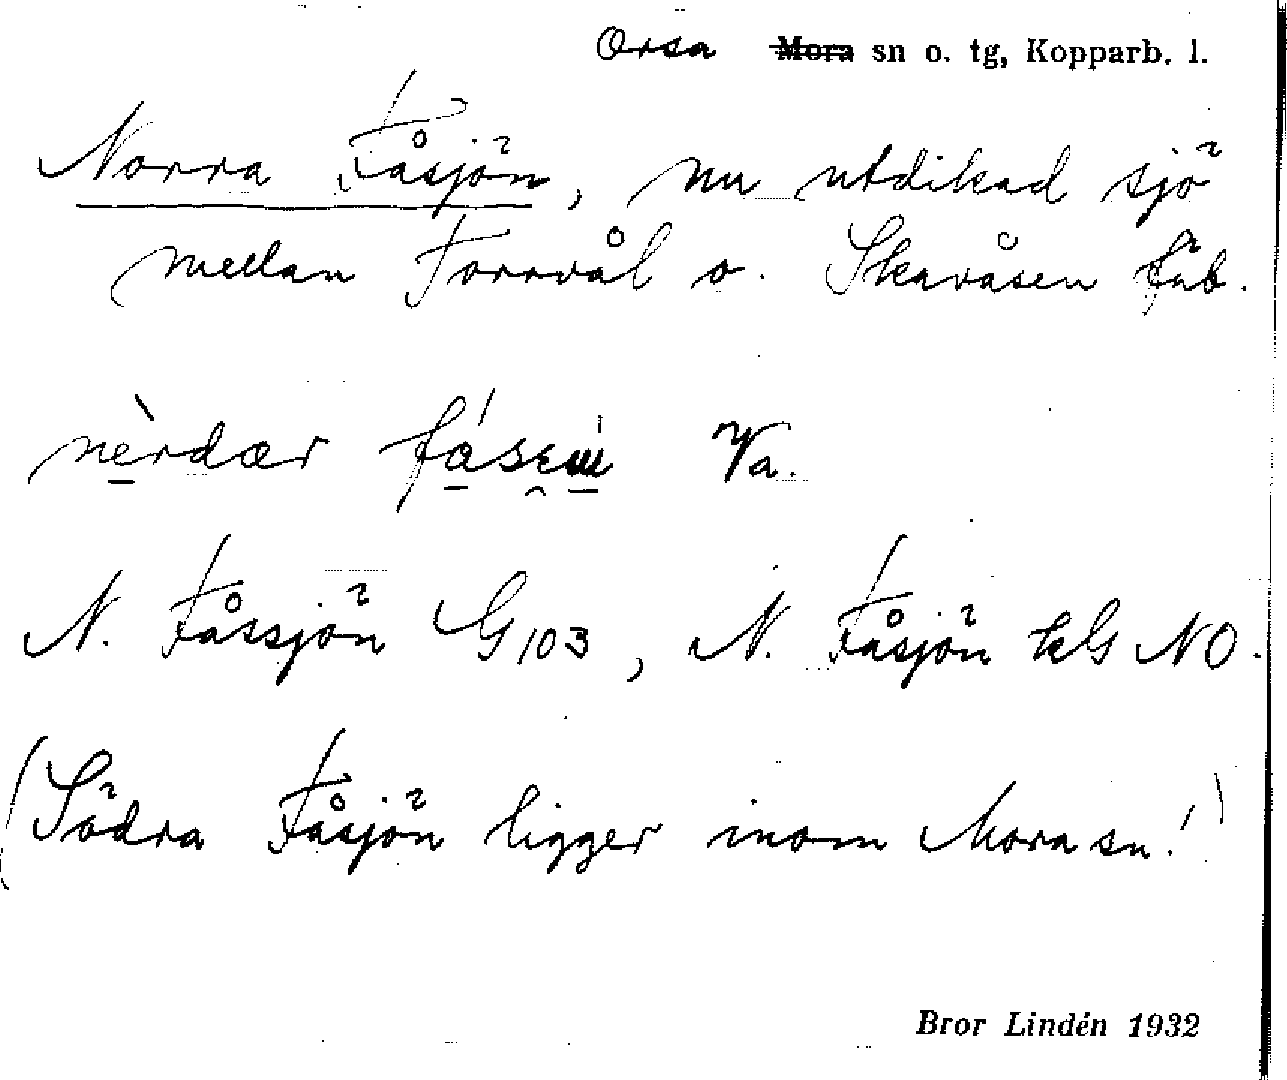 Orsa ~~Mora~~ sn o. tg, Kopparb. l.
Norra Fåsjön, nu utdikad sjö
mellan Torrvål o. Skavåsen fäb.
nèrdær
N. Fåssjön G 103, N. Fåsjön kG NO.
(Södra Fåsjön ligger inom Mora sn!)
Bror Lindén 1932